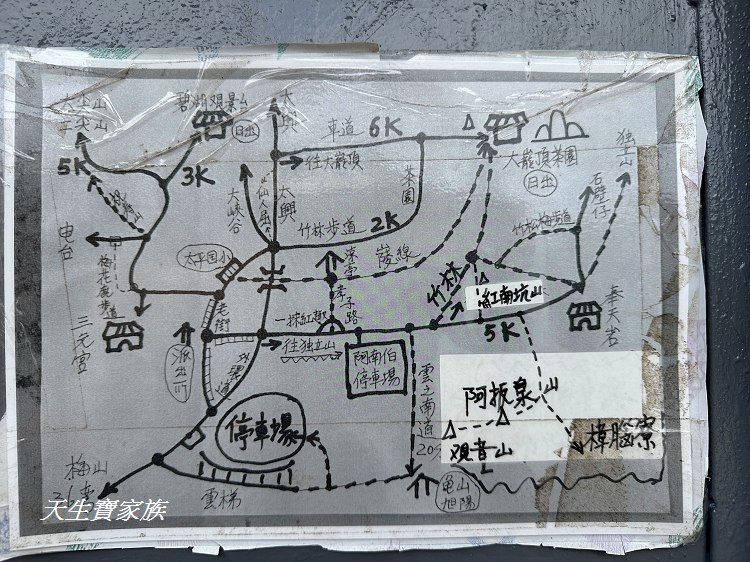 碧湖观景台
日出
太興
車道 6K
往大巖頂
大巖頂茶園
日出
独立山
5K
3K
大峽谷
仙人居
太興
茶園
石壁仔
竹林步道 2K
竹松梅步道
电台
梅花鹿步道
太平国小
稜線
孝子路
竹林
紅南坑山
奉天岩
三元宮
老街
一抹紅樹
往独立山
5K
派出所
外環道
阿南伯
停車場
雲之南道
209
阿扳泉山
觀音山
停車場
樟腦寮
梅山
雲梯
龟山
旭陽
天生寶家族